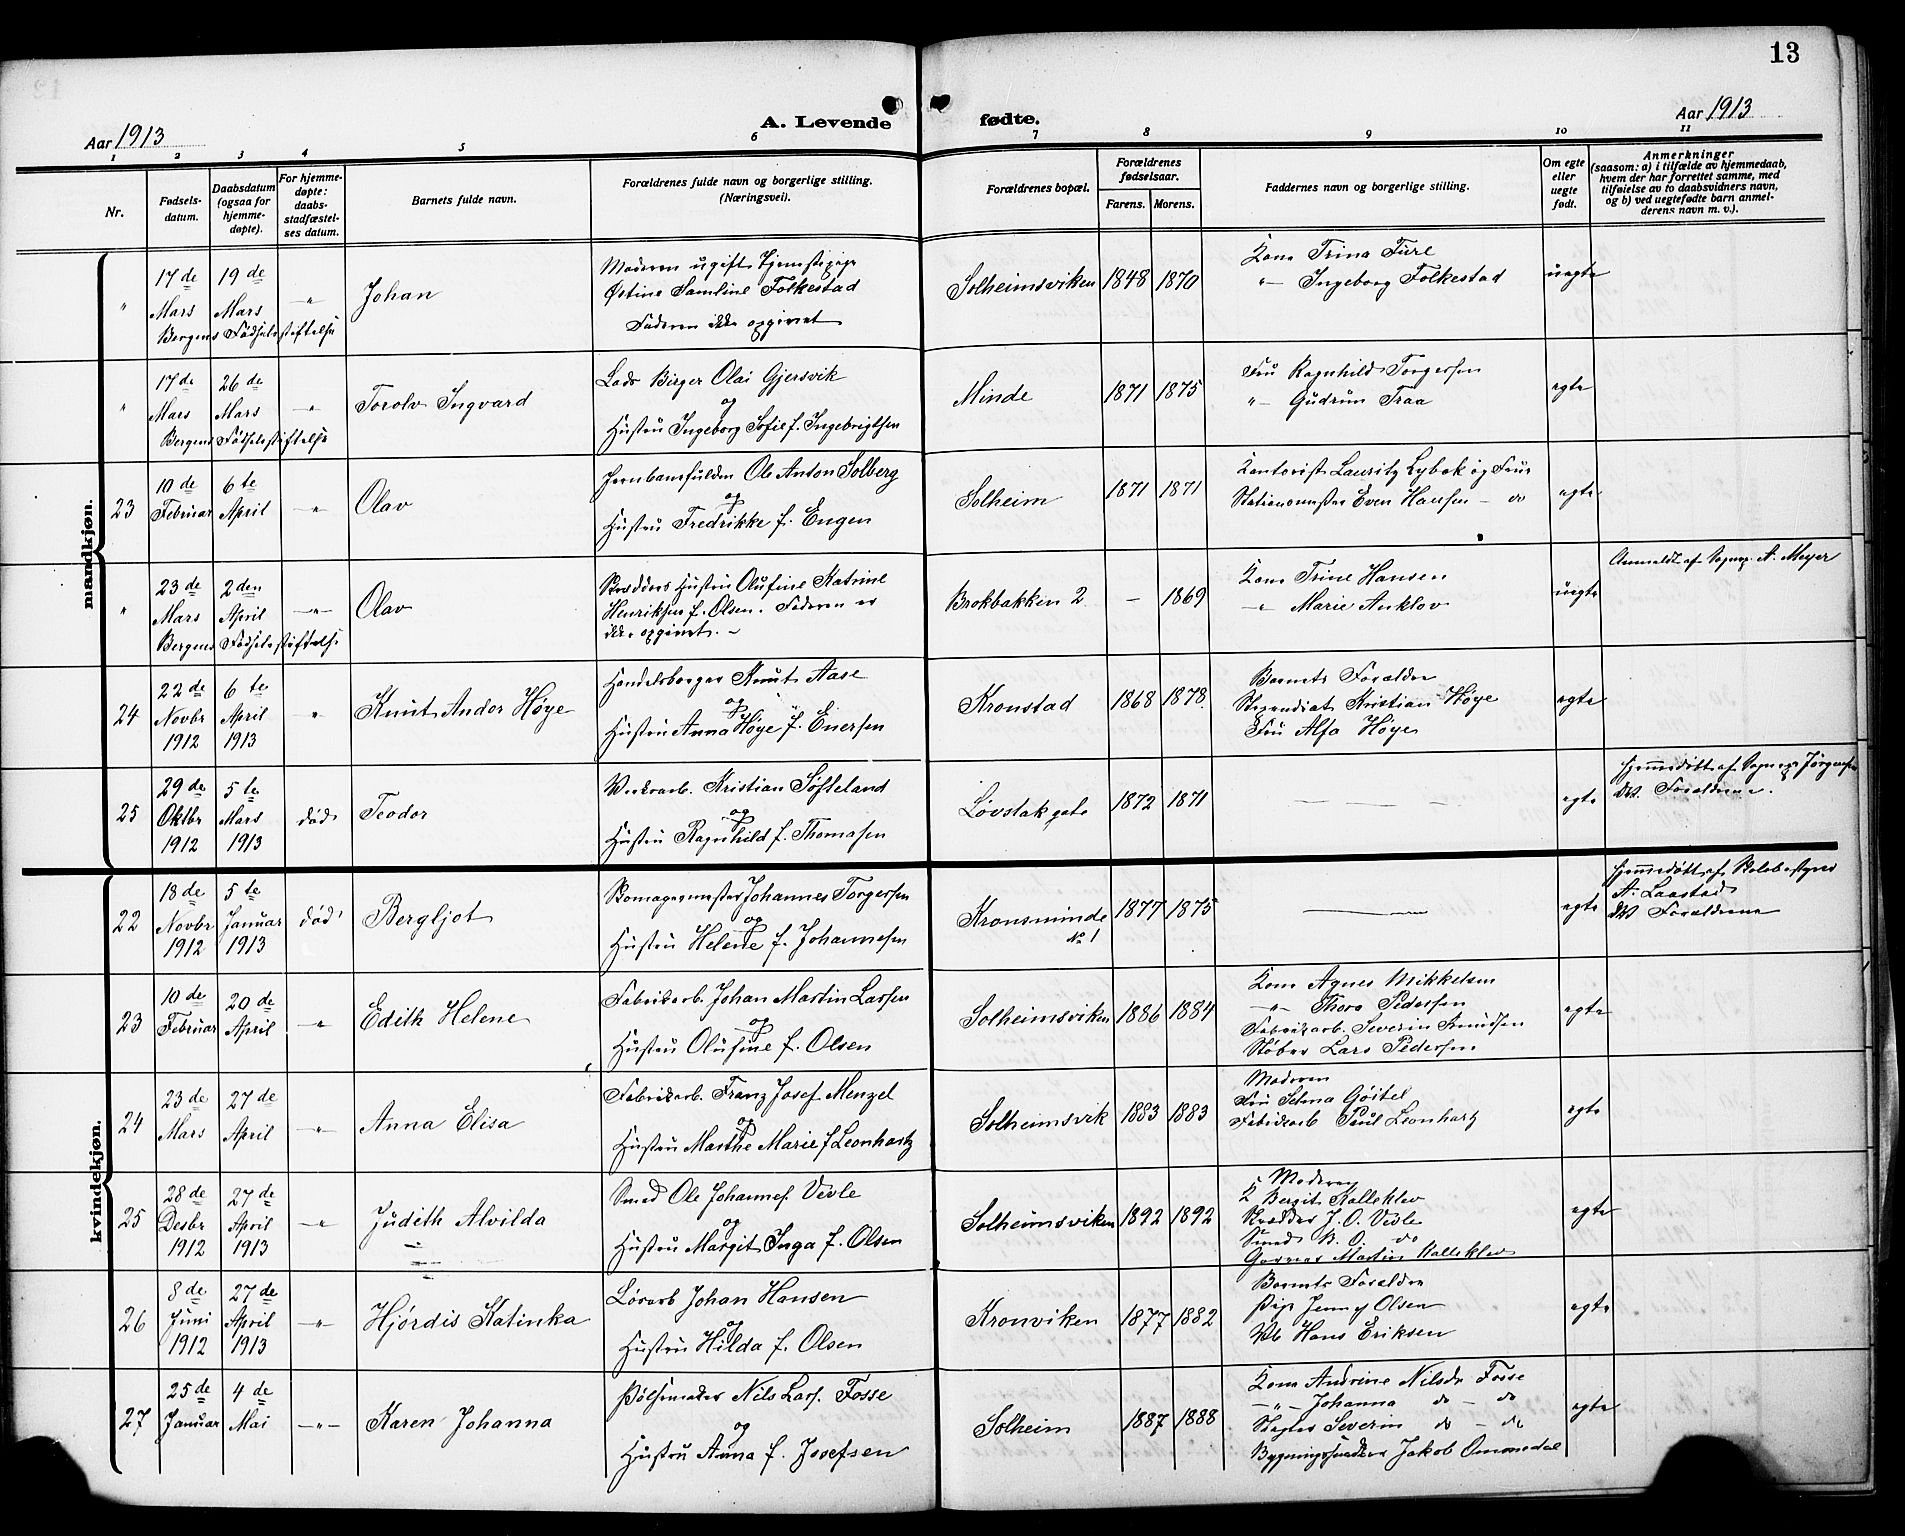 13
Aar 1913
A. Levende fødte.
Aar 1913
1 2 3 4 5 6 7 8 9 10 11
Nr.
Fødsels-
datum.
Daabsdatum
(ogsaa for
hjemme-
døpte).
For hjemme-
døpte:
daabs-
stadfæstel-
ses datum.
Barnets fulde navn.
Forældrenes fulde navn og borgerlige stilling.
(Næringsvei).
Forældrenes bopæl.
Forældrenes
fødselsaar.
Farens. Morens.
Faddernes navn og borgerlige stilling.
Om egte
eller
uegte
født.
Anmerkninger
(saasom: a) i tilfælde av hjemmedaab,
hvem der har forrettet samme, med
tilføielse av to daabsvidners navn,
og b) ved uegtefødte barn anmel-
derens navn m. v.).
mandkjøn.
"
17 de
Mars
19 de
Mars
Bergens Fødselsstiftelse
"
Johan
Moderen ugift Tjenestepige
Østine Samline Folkestad
Faderen ikke opgivet
Solheimsviken
1848 1870
Kone Trina Ture
" Ingeborg Folkestad
uegte
"
17 de
Mars
26 de
Mars
Bergens Fødselsstiftelse
"
Torolv Ingvard
Lods Birger Olai Gjersvik
og
Hustru Ingeborg Sofie f. Ingebrigtsen
Minde
1871 1875
Fru Ragnhild Torgersen
" Gudrun Traa
egte
23
10 de
Februar
6 te
April
"
Olav
Jernbanefuldm Ole Anton Solberg
og
Hustru Fredrikke f. Engen
Solheim
1871 1871
Kontorist Lauritz Lybek og Frue
Stationsmester Even Hansen - do
egte
"
23 de
Mars
2 den
April
Bergens Fødselsstiftelse
"
Olav
Skrædders Hustru Olufine Katrine
Henriksen f. Olsen. Faderen er
ikke opgivet. -
Brokbakken 2
- 1869
Kone Trine Hansen
" Marie Anklov
uegte
Anmeldt af Sognep. A. Meyer
24
22 de
Novbr
1912
6 te
April
1913
"
Knut Andor Høye
Handelsborger Knut Aase
og
Hustru Anna Høye f. Enersen
Kronstad
1868 1878
Barnets Forældre
Stipendiat Kristian Høye
Fru Alfa Høye
egte
25
29 de
Oktbr
1912
5 te
Mars
1913
død
Teodor
Verksarb. Kristian Søfteland
og
Hustru Ragnhild f. Thomasen
Løvstakgate
1872 1871
egte
Hjemmedøbt af Sognep. Jørgensen
Forældrene.
kvindekjøn.
22
18 de
Novbr
1912
5 te
Januar
1913
død
Bergljot
Skomagermester Johannes Torgersen
og
Hustru Helene f. Johannesen
Kronsminde
No 1
1877 1875
egte
Hjemmedøbt af Skolebestyrer
A. Laastad
Forældrene
23
10 de
Februar
20 de
April
"
Edith Helene
Fabrikarb. Johan Martin Larsen
og
Hustru Olufine f. Olsen
Solheimsviken
1886 1884
Kone Agnes Mikkelsen
" Thora Pedersen
Fabrikarb. Severin Knudsen
Støber Lars Pedersen
egte
24
23 de
Mars
27 de
April
"
Anna Elisa
Fabrikarb. Franz Josef Menzel
og
Hustru Marthe Marie f Leonhartz
Solheimsvik
1883 1883
Moderen
Fru Selma Göitel
Fabrikarb Paul Leonhartz
egte
25
28 de
Desbr
1912
27 de
April
1913
"
Judith Alvilda
Smed Ole Johannes. Vevle
og
Hustru Margit Inga f. Olsen
Solheimsviken
1892 1892
Moderen
K Bergit Kalleklev
Skrædder J. O. Vevle
Smed B. O. do
Garver Martin Kalleklev
egte
26
8 de
Juni
1912
27 de
April
1913
"
Hjørdis Katinka
Løsarb Johan Hansen
og
Hustru Hilda f. Olsen
Kronviken
1877 1882
Barnets Forældre
Pige Jenny Olsen
Hans Eriksen
egte
27
25 de
Januar
4 de
Mai
"
Karen Johanna
Pølsemaker Nils Lars. Fosse
og
Hustru Anna f. Josefsen
Solheim
1887 1888
Kone Andrine Nilsdr Fosse
" Johanna do - do
Slagter Severin do - do
Bygningssnedker Jakob Ommedal
egte